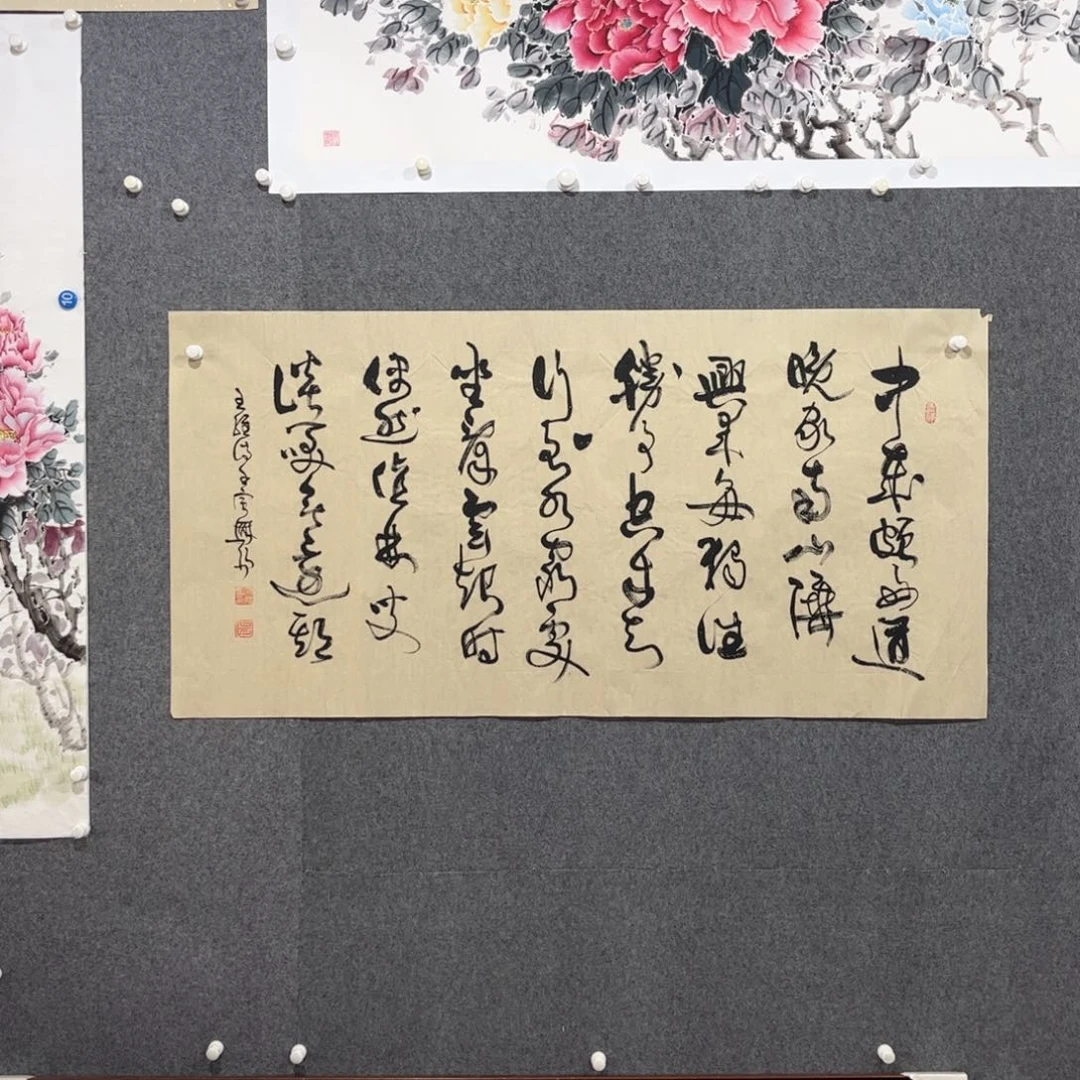 中歲頗好道
晚家南山陲
興來每獨往
勝事空自知
行到水窮處
坐看雲起时
偶然值林叟
談笑無還期
王維詩
10